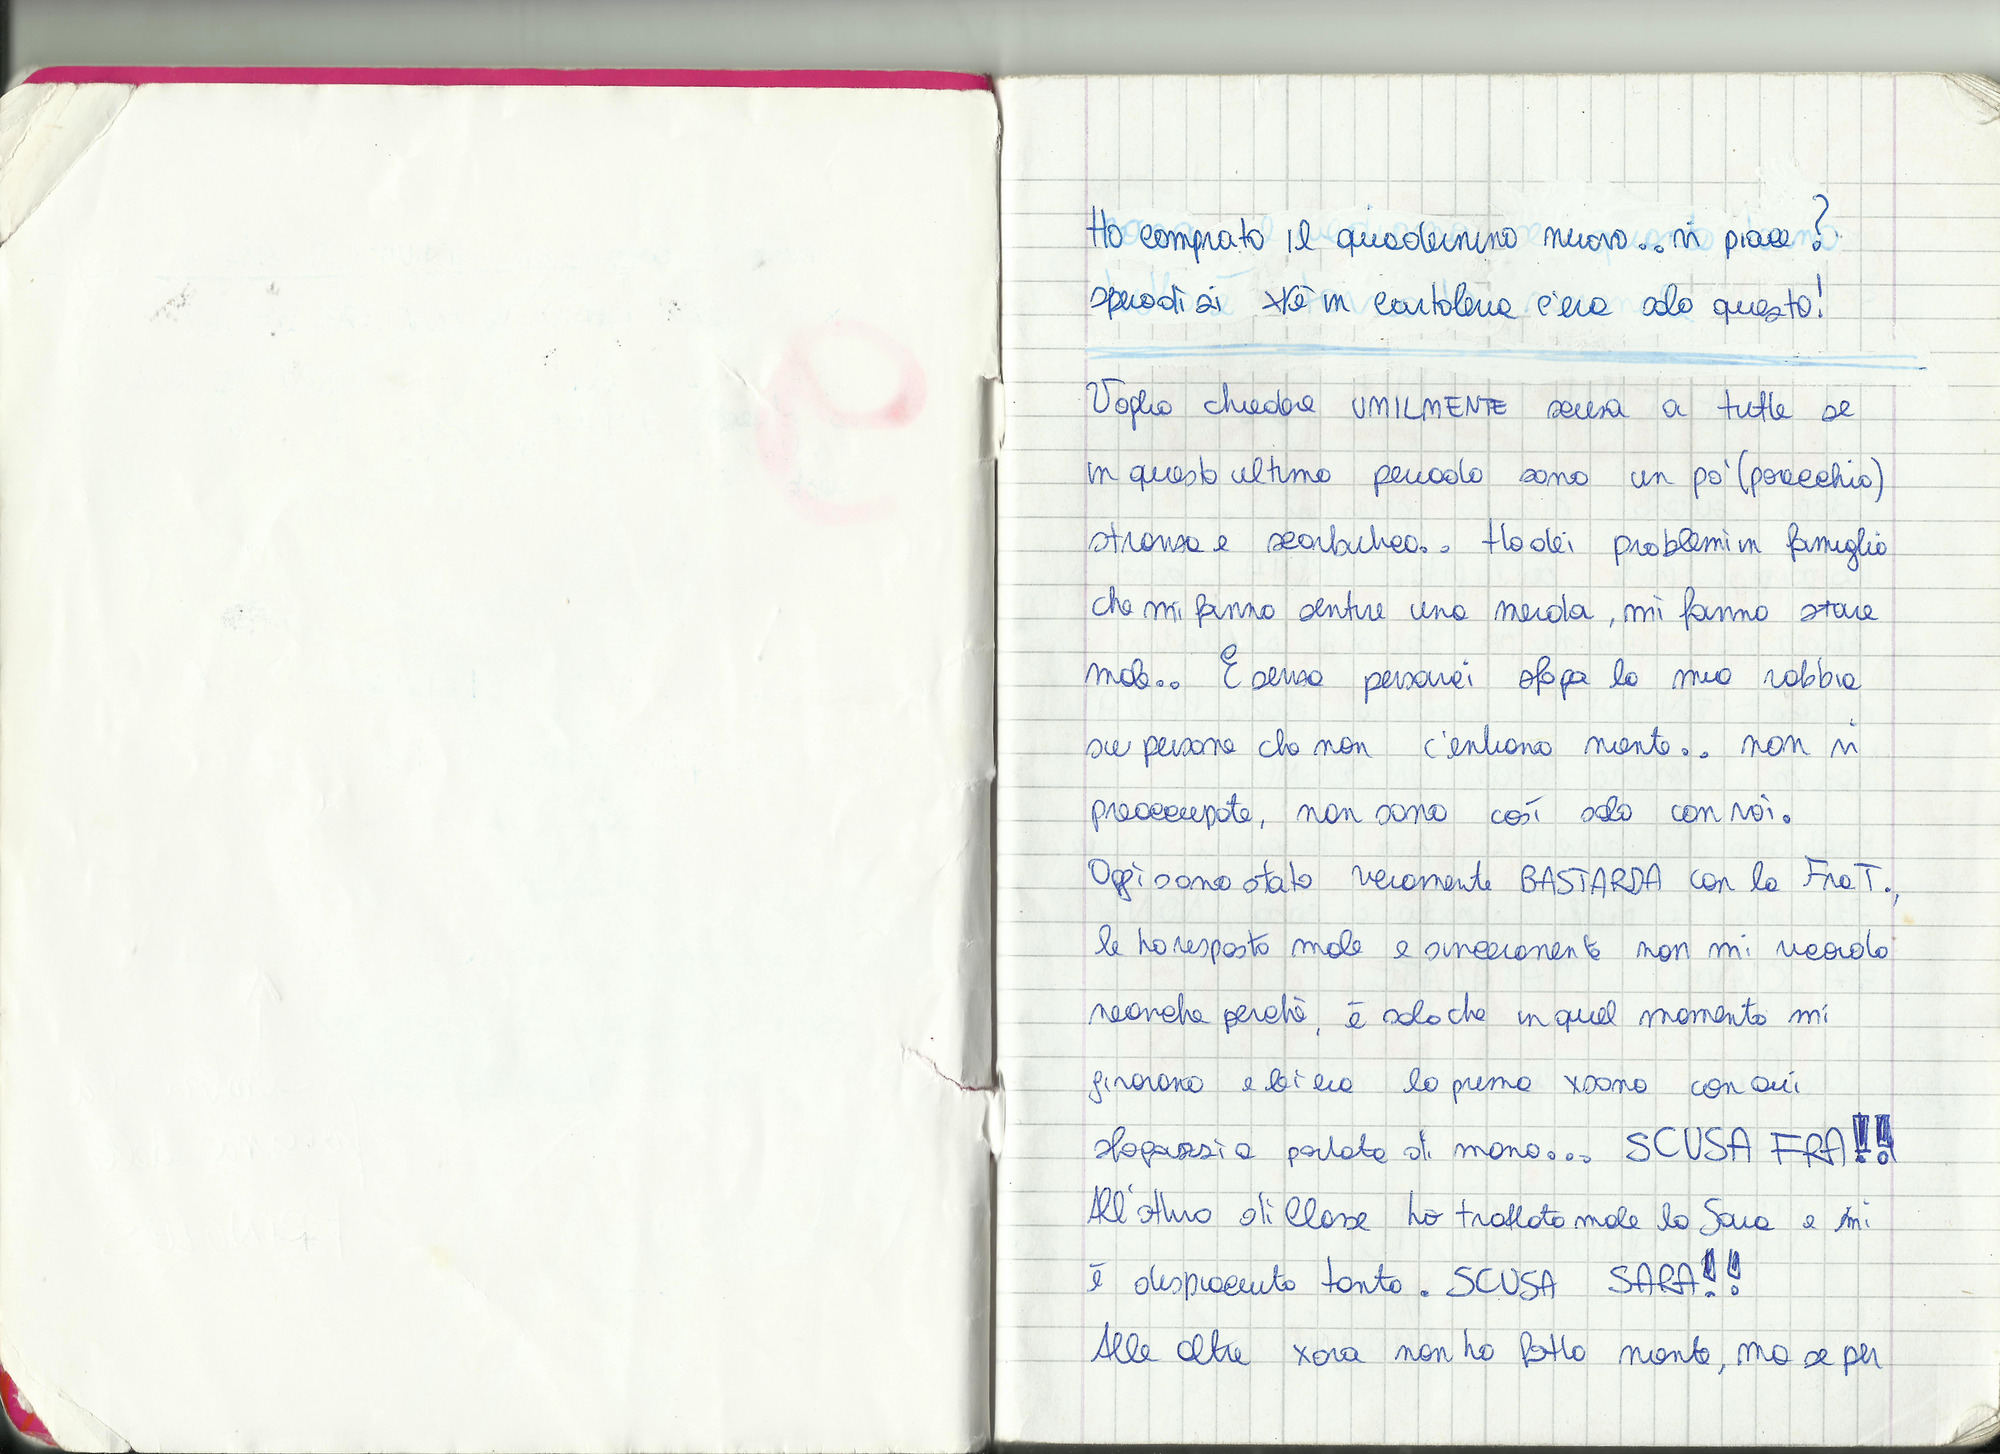 Ho comprato il quadernino nuovo.. vi piace?
spero di si xkè in cartoleria c'era solo questo!
Voglio chiedere UMILMENTE scusa a tutte se
in questo ultimo periodo sono un pò (parecchio)
stronza e scorbutica.. Ho dei problemi in famiglia
che mi fanno sentire una merda, mi fanno stare
male.. E senza pensarci sfogo la mia rabbia
su persone che non c'entrano niente.. non vi
preoccupate, non sono così solo con voi.
Oggi sono stata veramente BASTARDA con la Fra T.,
le ho risposto male e sinceramente non mi ricordo
neanche perchè, è solo che in quel momento mi
giravano e lei era la prima xsona con cui
sfogarsi a portata di mano... SCUSA FRA!!
All'altro di Classe ho trattato male la Sara e mi
è dispiaciuto tanto. SCUSA SARA!!
Alle altre xora non ho fatto niente, ma se per